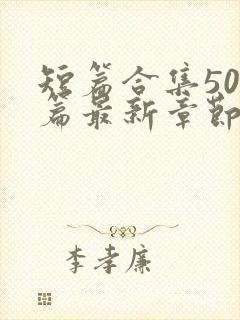 短篇合集50
篇最新章节
李孝廉